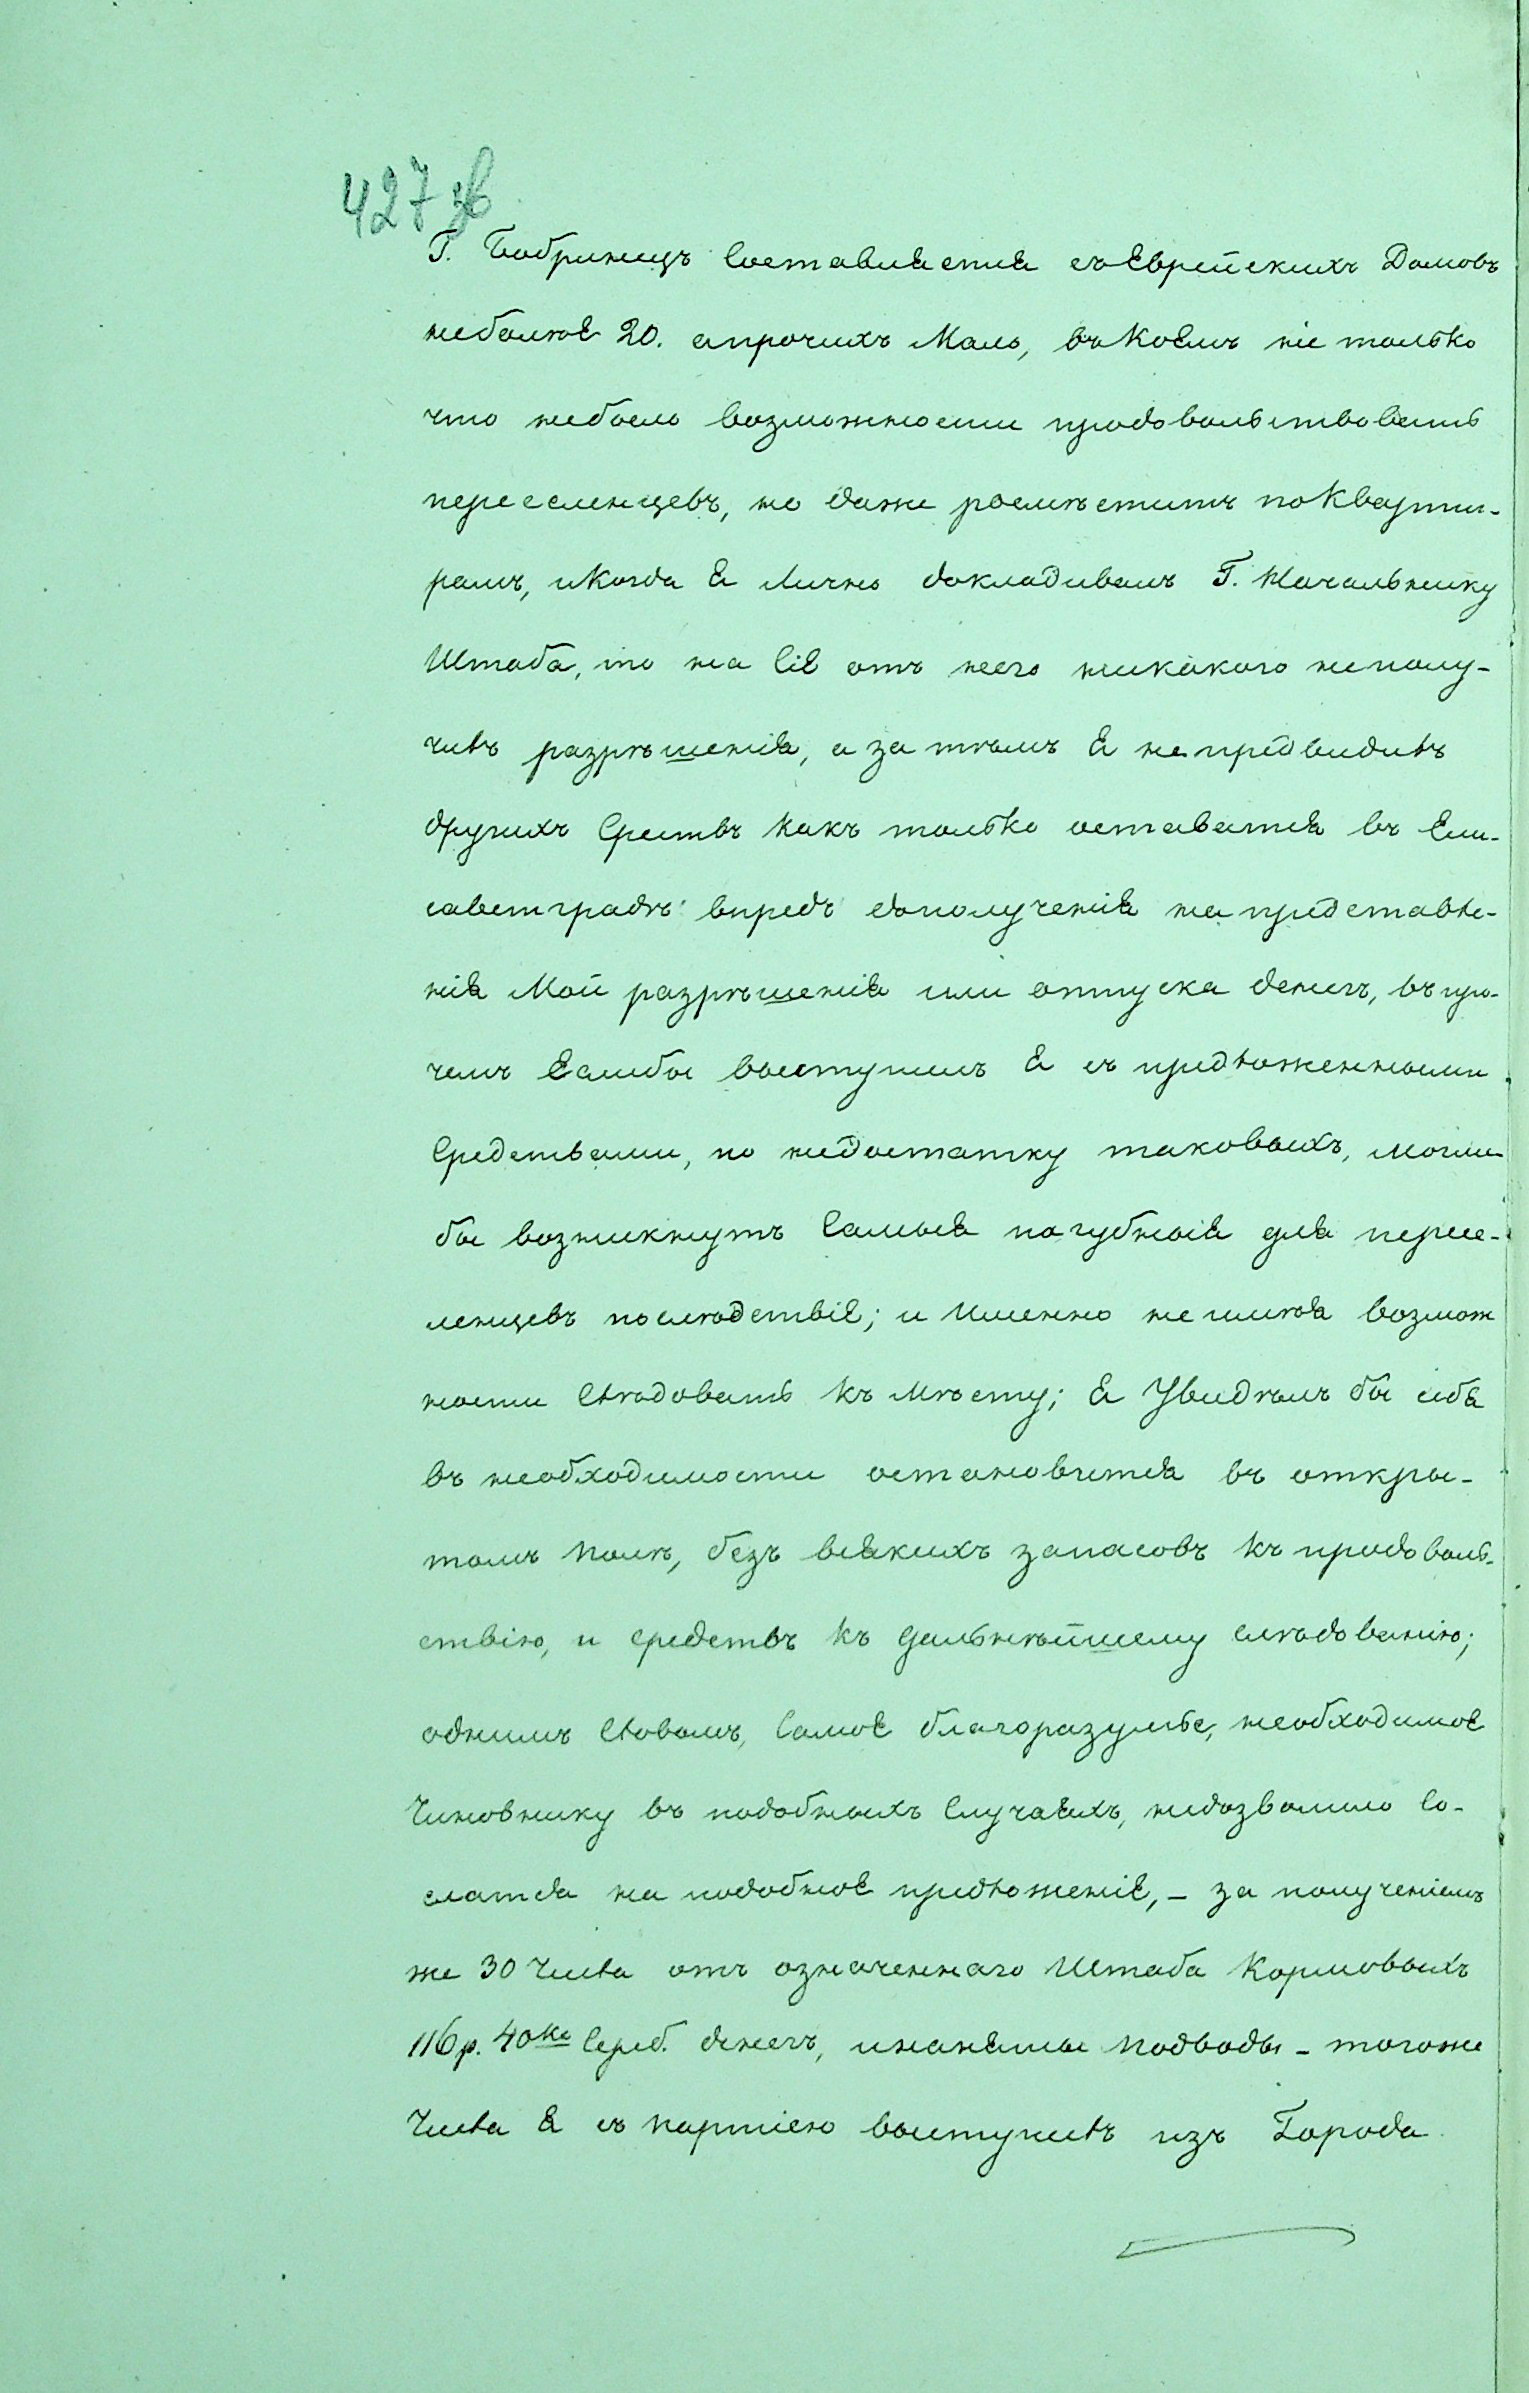 427 зв
Г. Бобринецъ Составляется съ Еврейскихъ Домовъ
неболѣе 20. апрочихъ Мало, въ Коемъ не только
что небыло возможности продовольствовать
переселенцевъ, но даже розмѣстить по Кварти-
рамъ, и Когда я Лично докладывалъ Г. Начальнику
Штаба, то на Сіе отъ него никакого неполу-
чивъ разрѣшенія, а за тѣмъ я не предвидивъ
другихъ Средствъ какъ только оставатся въ Ели-
саветградѣ впредъ дополученія на представле-
нія Мои разрѣшенія или отпуска денегъ, въ про-
чемъ Еслибы выступилъ я съ предложенными
Средствами, по недостатку таковыхъ, могли
бы возникнуть Самыя пагубныя для пересе-
ленцевъ послѣдствіе; и Именно не имѣя возмож
ности Слѣдовать къ Мѣсту; я Увидѣлъ бы себя
въ необходимости остановится въ откры-
томъ Полѣ, безъ всякихъ запасовъ къ продоволь-
ствію, и средствъ къ дальнѣйшему слѣдованію;
однимъ Словомъ, Самое благоразумье, необходимое
Чиновнику въ подобныхъ Случаяхъ, недозволило Со-
глатся на подобное предложеніе, – за полученіемъ
же 30 Числа отъ означеннаго Штаба Кормовыхъ
116 р. 40 ко Сереб. денегъ, инанялы Подводы – тогоже
Числа я съ партіею выступивъ изъ Города.